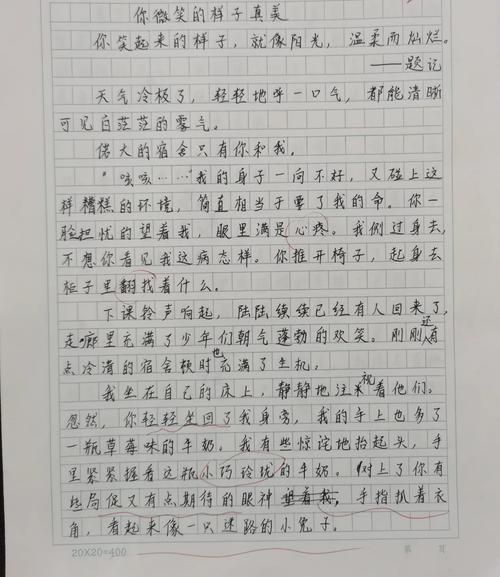 你微笑的样子真美
你笑起来的样子，就像阳光，温柔而灿烂。
——题记
天气冷极了，轻轻地呼一口气，都能清晰
可见白茫茫的雾气。
偌大的宿舍只有你和我。
“咳咳……”我的身子一向不好，又碰上这
样糟糕的环境，简直相当于要了我的命。你一
脸担忧的望着我，眼里满是心疼。我侧过身去，
不想你看见我这病怎样。你推开椅子，起身去
柜子里翻找着什么。
下课铃声响起，陆陆续续已经有人回来了，
走廊里充满了少年们朝气蓬勃的欢笑。刚刚还有
点冷清的宿舍顿时也充满了生机。
我坐在自己的床上，静静地注视着他们。
忽然，你轻轻坐回了我身旁，我的手上也多了
一瓶草莓味的牛奶。我有些惊诧地抬起头，手
里紧紧握着这瓶小巧玲珑的牛奶。对上了你有
些局促又有点期待的眼神，手指抓着衣
角，看起来像一只迷路的小兔子。
20X20=400
第 页